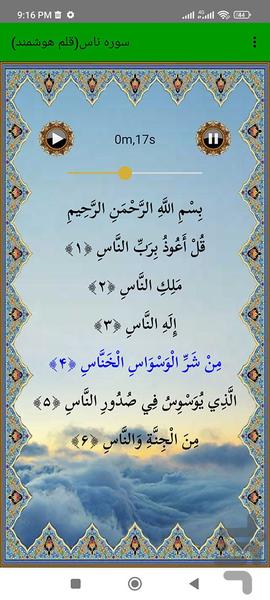 9:16 PM
سوره ناس(قلم هوشمند)
0m,17s
بِسْمِ اللَّهِ الرَّحْمَنِ الرَّحِيمِ
قُلْ أَعُوذُ بِرَبِّ النَّاسِ ﴿۱﴾
مَلِكِ النَّاسِ ﴿۲﴾
إِلَهِ النَّاسِ ﴿۳﴾
مِنْ شَرِّ الْوَسْوَاسِ الْخَنَّاسِ ﴿۴﴾
الَّذِي يُوَسْوِسُ فِي صُدُورِ النَّاسِ ﴿۵﴾
مِنَ الْجِنَّةِ وَالنَّاسِ ﴿۶﴾